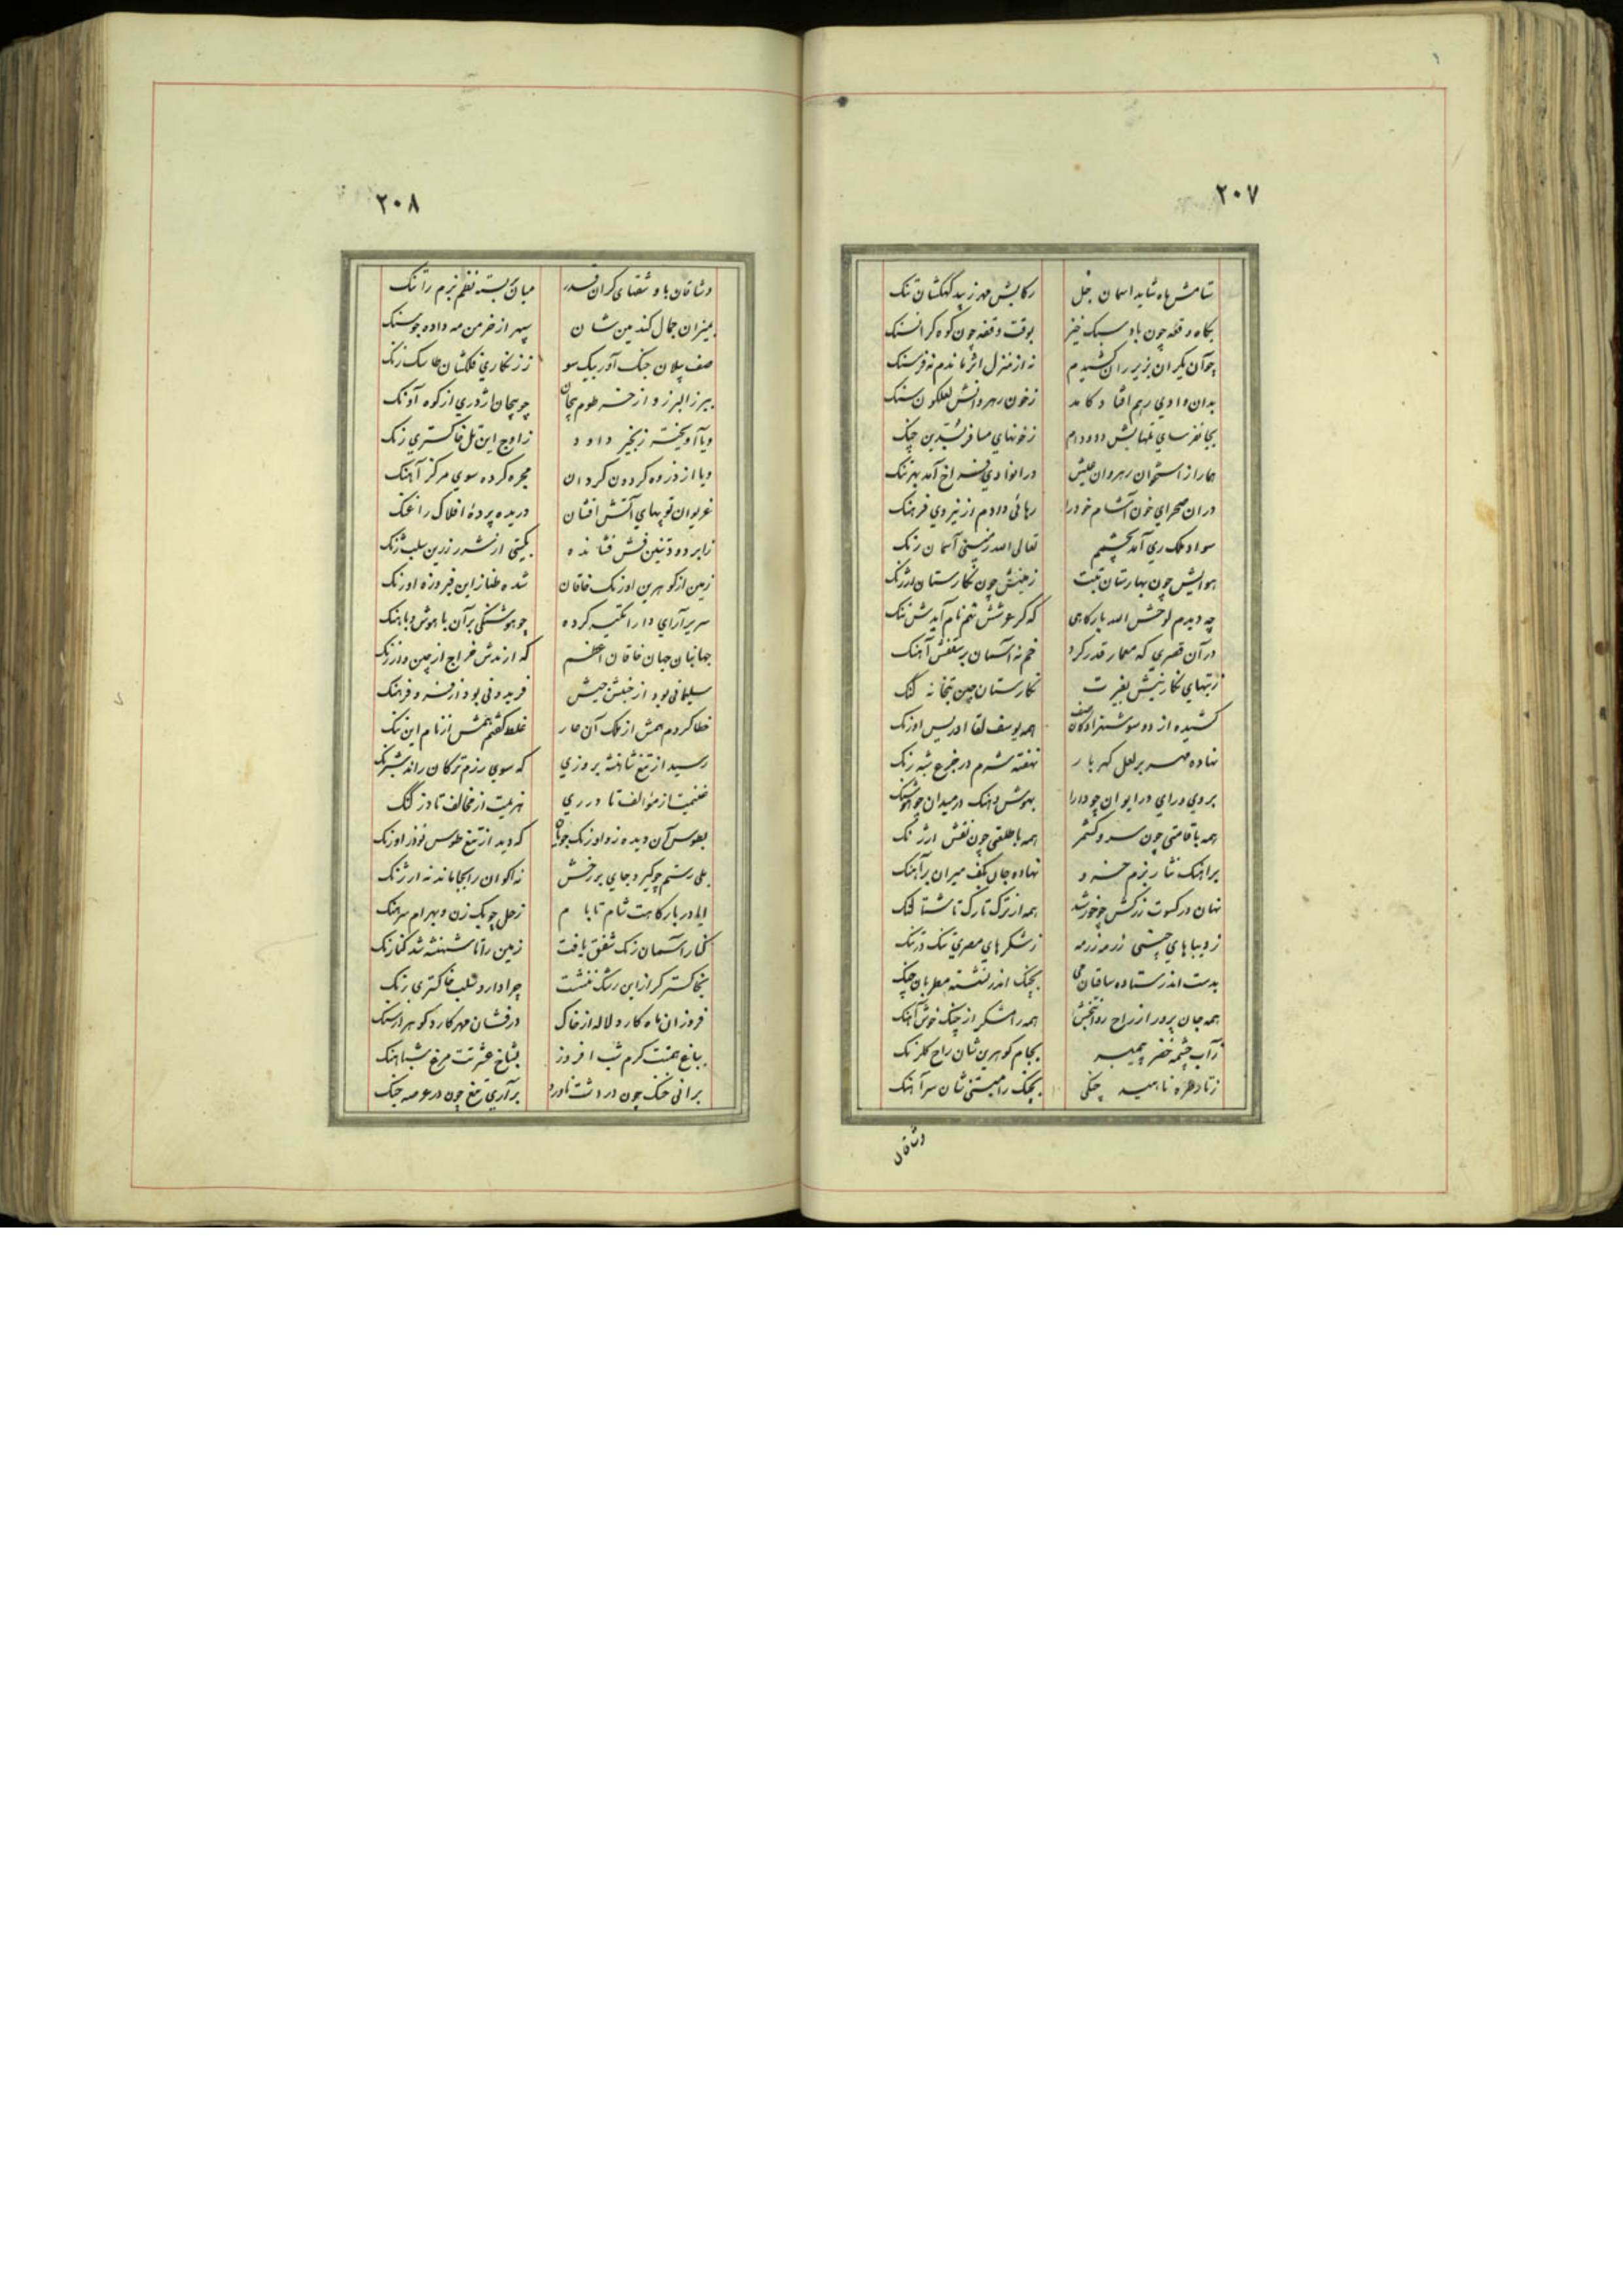 ۲۰۷
ستامش ماه شاید اسمان جل رکابش مهر زیبد کهکشان تنک
بکاه وقعه چون باد سبک خیز بوقت وقفه چون کوه کرانسنک
چو آن یکران بزیر ران کشیدم نه از منزل اثر ماندم نه فرسنک
بدان وادی رهم افتاد کامد زخون رهروانش لعلکون سنک
دام زخونهای مسافر چنک
همار از استخوان رهروان در انوادی فراخ آمد تنک
دران صحرای خون آشام خود را رهائی دادم از نیروی فرهنک
سواد ملک ری آمد بچشمم تعالی الله زمینی آسمان رنک
هوایش چون بهارستان تبت زمینش چون نکارستان ارژنک
چه دیدم لوحش الله بارکاهی که کر عرشش نهم نام آیدش ننک
در آن قصری که معمار قدر کرد خم نه آسمان بر سقفش آهنک
زبتهای نکارینش بغیرت نکارستان چین بتخانه کنک
کشیده از دو سو شهزادکان صف همه یوسف لقا ادریس اورنک
نهاده مهر بر لعل کهربار نهفته شرم در جزع شبه رنک
بروی ورای در ایوان چو دارا بهوش وهنک در میدان چو هوشنک
همه با قامتی چون سرو کشمر همه با طلعتی چون نقش ارژنک
براهنک نثار بزم خسرو نهاده جان بکف میران برآهنک
نهان در کسوت زرکش چو خورشید همه از ترک تارک تا شتالنک
ز دیباهای چینی رزمه رزمه زشکرهای مصری تنک در تنک
بدست اندر ستاده ساقیان می بچنک اندر نشسته مطربان چنک
همه جان پرور از راح روانبخش همه رامشکر از چنک خوش آهنک
زآب چشمه خضر پیمبر بجام کوهرین شان راح کلرنک
زتار طره ناهید چنکی بچنک رامتینی شان سرآهنک
وشاقان
۲۰۸
وشاقان با وشقهای کران قدر میان بسته نظم بزم را تنک
بمیزان جمال کندمین شان سپهر از خرمن مه داده جو سنک
صف پیلان جنک آور بیک سو ز زنکاری
ببرز البرز و از خرطوم پیچان چو پیچان اژدری از کوه آونک
ویا آویخته زنجیر داود زاوج این تل خاکستری رنک
ویا از ذروه کردون کردان مجره کرده سوی مرکز آهنک
غریوان توپهای آتش افشان دریده پردهٔ افلاک را غنک
زابر دود تنین فش فشانده بکیتی از شرر زرین
زمین از کوهرین اورنک خاقان شده طناز این فیروزه اورنک
سریر آرای دارا تکیه کرده چو هوشنکی بر آن با هوش و با هنک
جهانبان جهان خاقان اعظم که ارندش خراج از چین و از زنک
سلیمانی بود از جنبش جیش فریدونی بود از فر و فرهنک
خطا کردم همش از ملک آن عار غلط کفتم همش از نام این ننک
رسید از تیغ شاهنشه بروزی که سوی رزم ترکان راند شبرنک
غنیمت از موالف تا در ری هزیمت از مخالف تا دز کنک
بطوس آن دیده زو اورنک جویان که دید از تیغ طوس نوذر اورنک
بلی رستم چو کیرد جای بر رخش نه اکوان را بجا ماند نه ارژنک
ایا در بارکاهت شام تا بام زحل چوبک زن و بهرام سرهنک
کنار آسمان رنک شفق یافت زمین را تا شهنشه شد کنارنک
بخاکستر کر از این رشک ننشست چرا دارد خاکستری رنک
فروزان ماه کارد لاله از خاک درفشان مهر کارد کوهر از سنک
بباغ همتت کرم شب افروز بشاخ عشرتت مرغ شباهنک
برانی خنک چون در دشت ناورد برآری تیغ چون در عرصه جنک